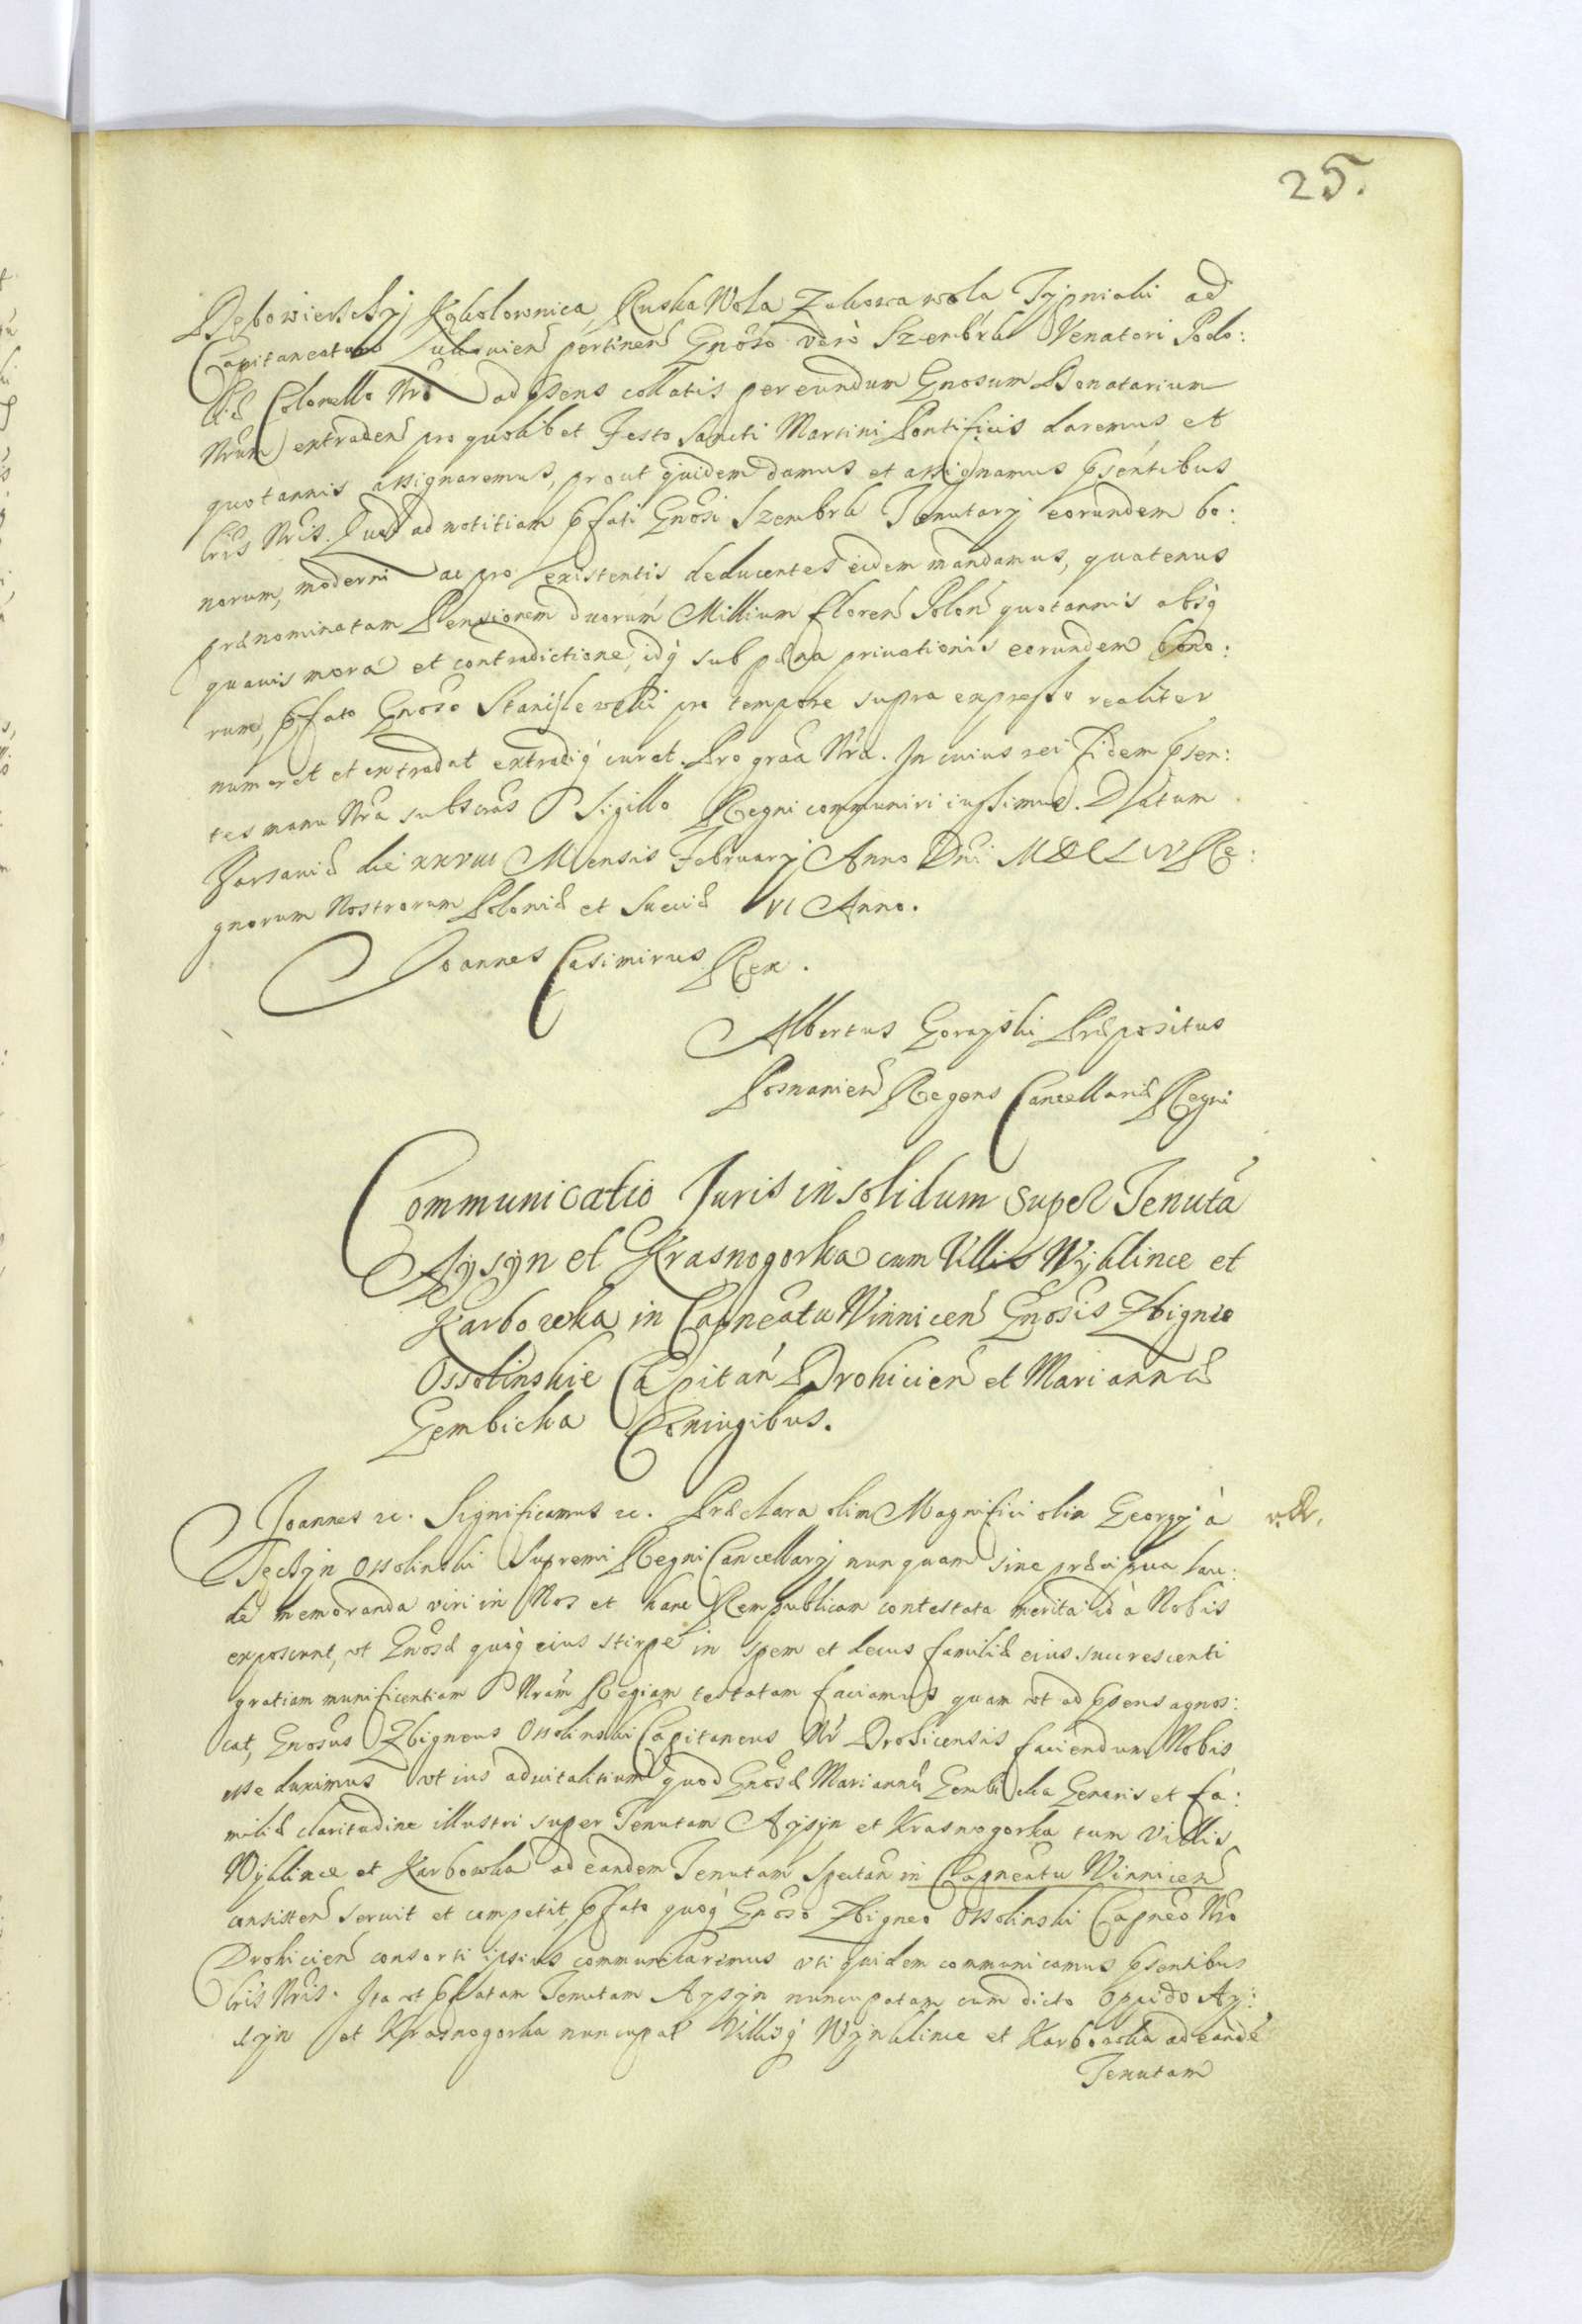 25.
Kąkolownica, Ruska Wola Zakowa wola Tÿpniaki ad
Capitaneatum Lukowien pertinen Gnoso verò Szembrk Venatori Podo:
Colonello Nro ad psens collatis per eundum Gnosum Donatarium
Nrum extraden pro quolibet Festo Sancti Martini Pontificis daremus et
quotannis assignaremus, prout quidem damus et assignamus psentibus
lris Nris. Quod ad notitiam pfati Gnosi Szembrk Tenutarÿ eorundem bo:
norum, moderni ac pro existentis deducentes eidem mandamus, quatenus
prænominatam Pensionem duorum Millium floren Polon quotannis absq
quavis mora et contradictione, idq sub pæna privationis eorundem bono:
rum, pfato Gnoso Stanislewski pro tempore supra expresso realiter
numeret et extradat extradiq curet. Pro graa Nra. In cuius rei fidem psen:
tes manu Nra subscras Sigillo Regni communiri iussimus. Datum
Varsaviæ die xxviii Mensis Februarÿ Anno Dni MDCLIV Re:
gnorum Nostrorum Poloniæ et Sueciæ VI Anno.
Joannes Casimirus Rex.
Albertus Gorayski Præpositus
Posnanien Regens Cancellariæ Regni
Communicatio Juris in solidum super Tenuta
Aÿsÿn et Krasnogorka cum Villis Wÿklince et
Karbowka in Capneatu Winnicen Gnosis Zbigneo
Ossolinskie Capitan Drohicien et Mariannæ
Gembicka Coniugibus.
Joannes etc. Significamus etc. Præclara olim Magnifici olim Georgÿ à
Tęczÿn Ossolinski Supremi Regni Cancellarÿ nunquam sine præcipua lau:
de memoranda viri in Nos et hanc Rempublicam contestata merita id à Nobis
exposcunt, vt Gnosæ quoq eius stirpe in spem et decus familiæ eius succrescenti
gratiam munificentiam Nram Regiam testatam faciamus quam vt ad psens agnos:
cat, Gnosus Zbigneus Ossolinski Capitaneus Nr Drohicensis faciendum Nobis
esse duximus vt ius advitalitium quod Gnosæ Mariannæ Gembicka Generis et fa:
miliæ claritudine illustri super Tenutam Aÿsÿn et Krasnogorka tum Villis
Wÿklince et Karbowka ad eandem Tenutam spectan in Capneatu Winnicen
consisten servit et competit, pfato quoq Gnoso Zbigneo Ossolinski Capneo Nro
Drohicien consorti ipsius communicaremus vti quidem communicamus psentibus
lris Nris. Ita vt pfatam Tenutam Aÿsÿn nuncupatam cum dicto oppido Aÿ:
sÿn et Krasnogorka nuncupat Villisq Wÿnklince et Karbowka ad eande
Tenutam